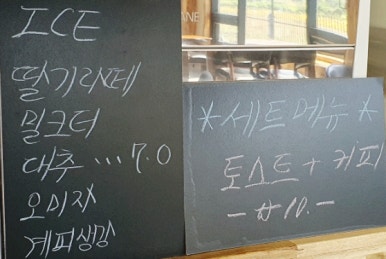 ICE
딸기라떼
밀크티
대추 ... 7.0
오미자
계피생강
*세트메뉴*
토스트 + 커피
- ₩10.-